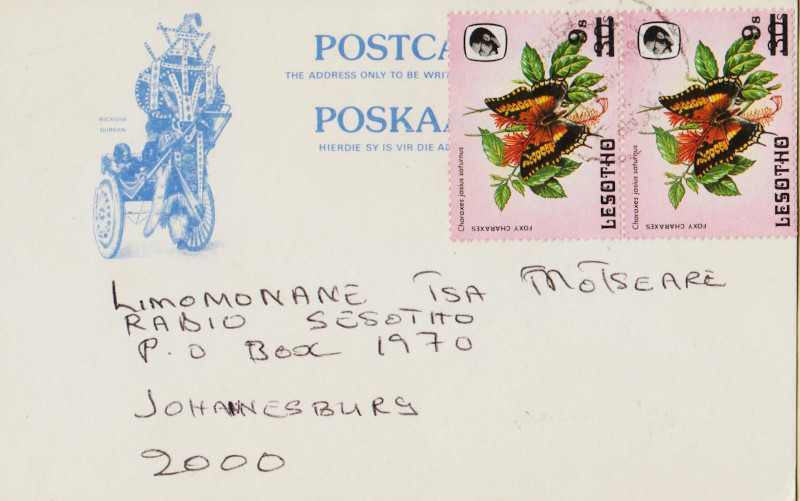 RICKSHA
DURBAN
POSTCA
THE ADDRESS ONLY TO BE WRIT
POSKAA
HIERDIE SY IS VIR DIE AD
9s 30s
Charaxes jasius saturnus
FOXY CHARAXES
LESOTHO
9s 30s
Charaxes jasius saturnus
FOXY CHARAXES
LESOTHO
LIMOMONANE TSA MOTSEARE
RADIO SESOTHO
P.O BOX 1970
JOHANNESBURG
2000